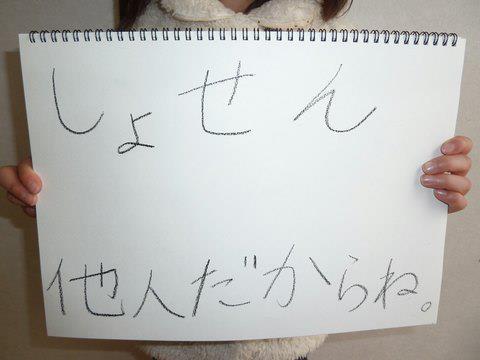 しょせん
他人だからね。